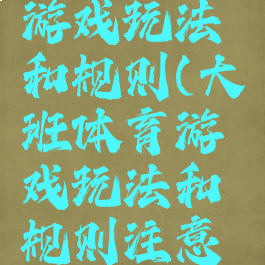 游戏玩法
和规则(大
班体育游
戏玩法和
规则注意